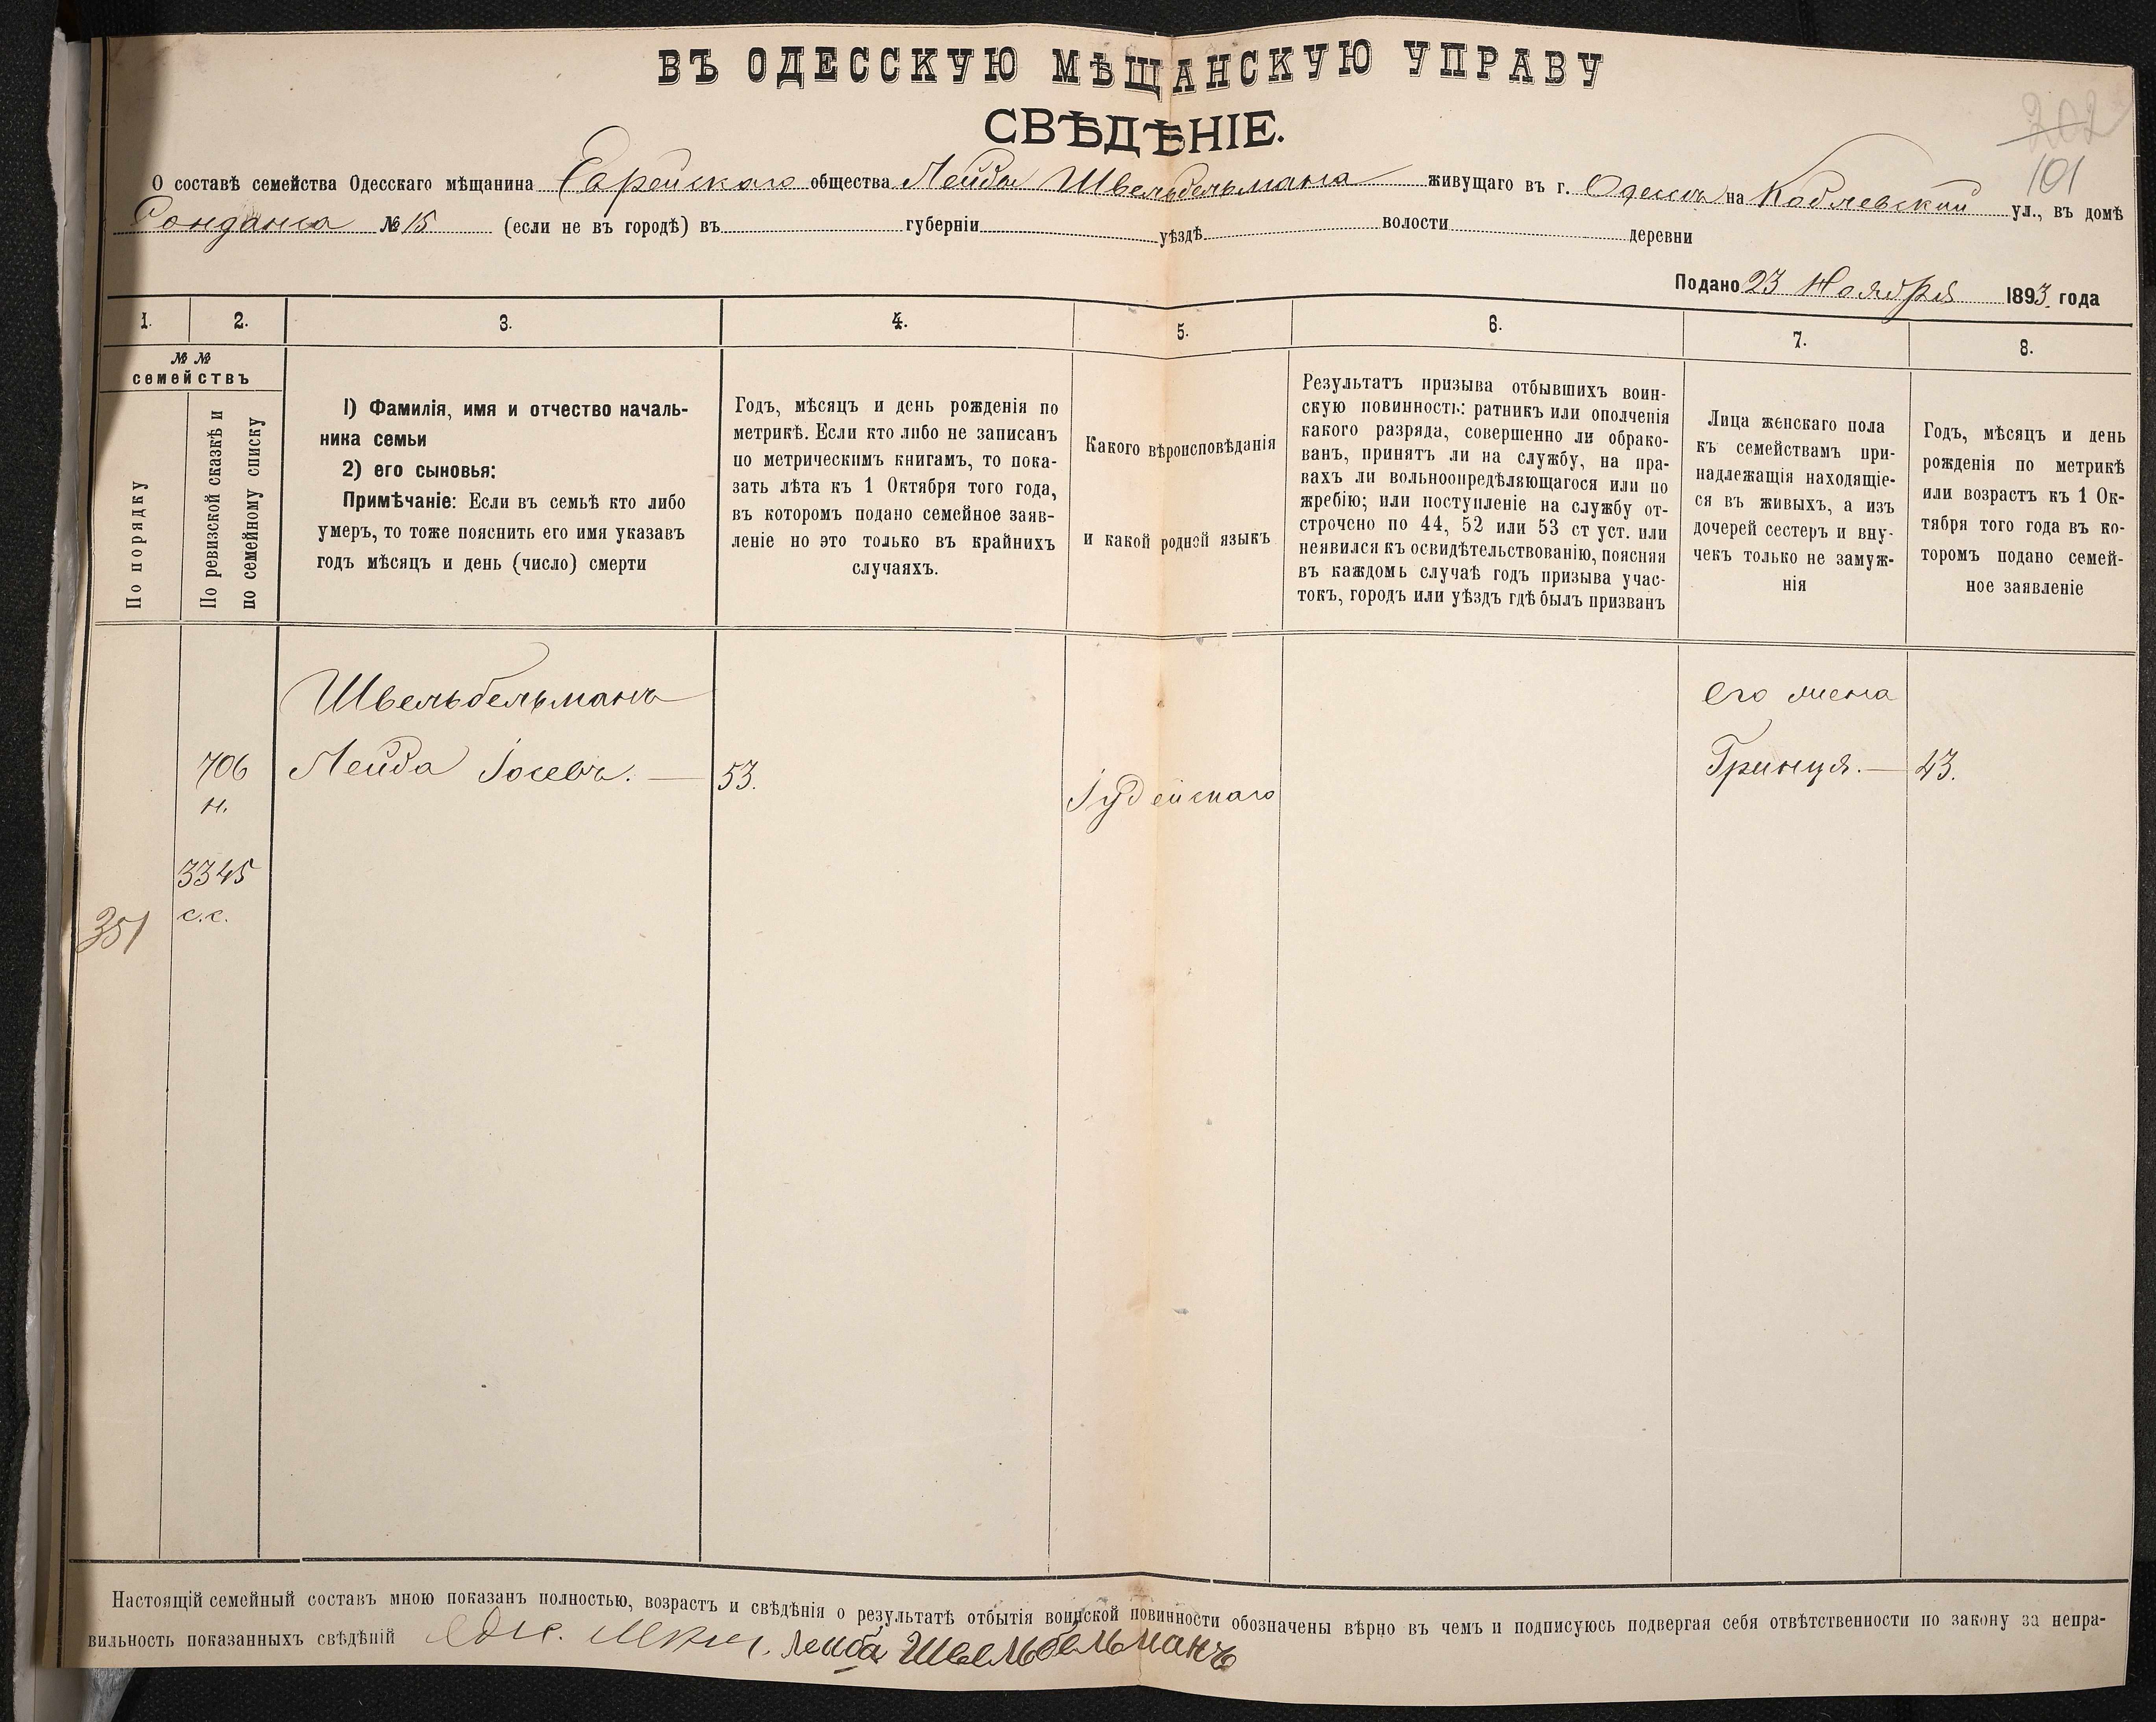 ВЪ ОДЕССКУЮ МѢЩАНСКУЮ УПРАВУ
СВѢДѢНІЕ.
202
101
О составѣ семейства Одесскаго мѣщанина Еврейскаго общества Лейба Швельбельмана живущаго въ г. Одессѣ на Коблевский ул., въ домѣ
№ 15 (если не въ городѣ) въ губерніи уѣздѣ волости деревни
Подано 23 Ноября 1893 года
1. 2. 3. 4. 5. 6. 7. 8.
№ №
семействъ
По порядку
По ревизской сказкѣ и
по семейному списку
1) Фамилія, имя и отчество началь-
ника семьи
2) его сыновья:
Примѣчаніе: Если въ семьѣ кто либо
умеръ, то тоже пояснить его имя указавъ
годъ мѣсяцъ и день (число) смерти
Годъ, мѣсяцъ и день рожденія по
метрикѣ. Если кто либо не записанъ
по метрическимъ книгамъ, то пока-
зать лѣта къ 1 Октября того года,
въ которомъ подано семейное заяв-
леніе но это только въ крайнихъ
случаяхъ.
Какого вѣроисповѣданія
и какой родной языкъ
Результатъ призыва отбывшихъ воин-
скую повинность: ратникъ или ополченія
какого разряда, совершенно ли обрако-
ванъ, принятъ ли на службу, на пра-
вахъ ли вольноопредѣляющагося или по
жребію; или поступленіе на службу от-
строчено по 44, 52 или 53 ст уст. или
неявился къ освидѣтельствованію, поясняя
въ каждомъ случаѣ годъ призыва учас-
токъ, городъ или уѣздъ гдѣ былъ призванъ
Лица женскаго пола
къ семействамъ при-
надлежащія находящіе-
ся въ живыхъ, а изъ
дочерей сестеръ и вну-
чекъ только не замуж-
нія
Годъ, мѣсяцъ и день
рожденія по метрикѣ
или возрастъ къ 1 Ок-
тября того года въ ко-
торомъ подано семей-
ное заявленіе
Швельбельманъ его жена
706 Лейба Іосевъ. — 53. Іудейскаго Гринця. — 43.
н.
3345
с.с.
351
Настоящій семейный составъ мною показанъ полностью, возрастъ и свѣдѣнія о результатѣ отбытія воинской повинности обозначены вѣрно въ чемъ и подписуюсь подвергая себя отвѣтственности по закону за непра-
вильность показанныхъ свѣдѣній Одес. Мѣщ. Леиба Швельбельманъ